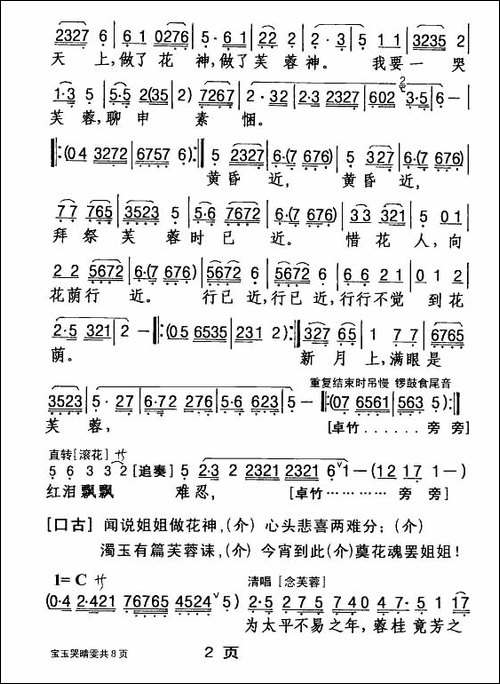 2327 6 | 6 1 0276 | 5·6 1 | 22 2 | 2·3 5 | 1 1 3235 2
天 上，做了 花 神，做了 芙 蓉 神。 我要 一 哭
1·3 5 | 5·5 2(35 | 2) 7267 | 2·32 | 2·3 2327 | 602 3·5 | 6 — |
芙 蓉，聊 申 素 悃。
‖:(04 3272 | 6757 6):‖ 5 2327 | 6·(7 676) | 5 327 | 6·(7 676) |
黄昏 近， 黄昏 近，
77 765 | 3523 5 | 5·6 7672 | 6·(7 676) | 33 321 | 5 01 |
拜祭 芙 蓉 时 已 近。 惜花 人，向
2 2 5672 | 6·(7 676) | 5672 6 | 5672 6 | 6 6 6 | 0 1 2 |
花荫行 近。 行已 近，行已 近，行行不觉 到花
2·5 321 | 2 — ‖:(05 6535 | 231 2):‖ 327 65 | 1 7 7 | 6765 |
荫。 新 月 上，满眼是
重复结束时吊慢 锣鼓食尾音
3523 5 | 2 — | 6·72 276 | 5·6 623 | 5 — ‖:(07 6561 | 563 5):‖
芙 蓉， [卓竹……旁 旁]
直转[滚花] サ
5 6 3 3 2 [追奏] 5 2·3 2 2321 2321 6 1 — (12 17 1 —
红泪飘飘 难忍， [卓竹…………旁 旁]
[口古] 闻说姐姐做花神，(介) 心头悲喜两难分；(介)
濁玉有篇芙蓉诔，(介) 今宵到此(介)奠花魂罢姐姐！
1=C サ 清唱 [念芙蓉]
(0·4 2·421 76765 4524 5) 2·5 2 7 5 7 1 5 2 5 1 17
为太平不易之年，蓉桂竟芳之
宝玉哭晴雯共8页 2 页